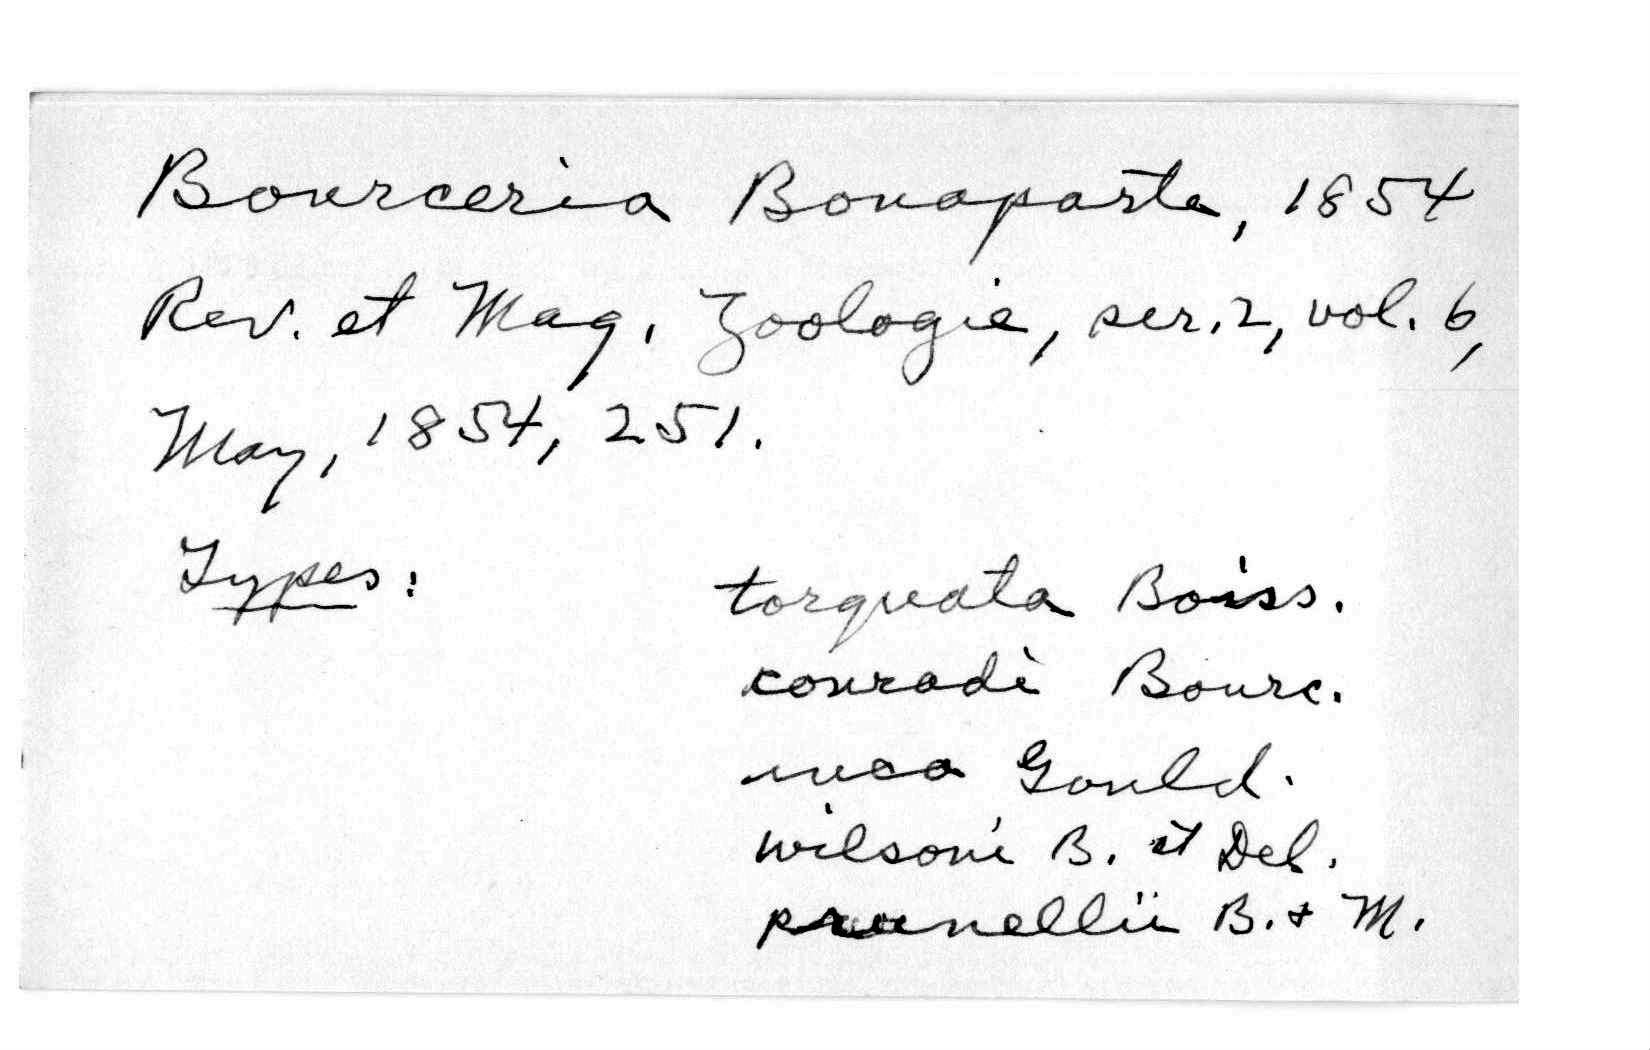 Bourceria Bonaparte, 1854
Rev. et Mag. Zoologie, ser. 2, vol. 6,
May, 1854, 251.
Types: torquata Boiss.
conradi Bourc.
inca Gould.
wilsoni B. et Del.
prunellii B. & M.